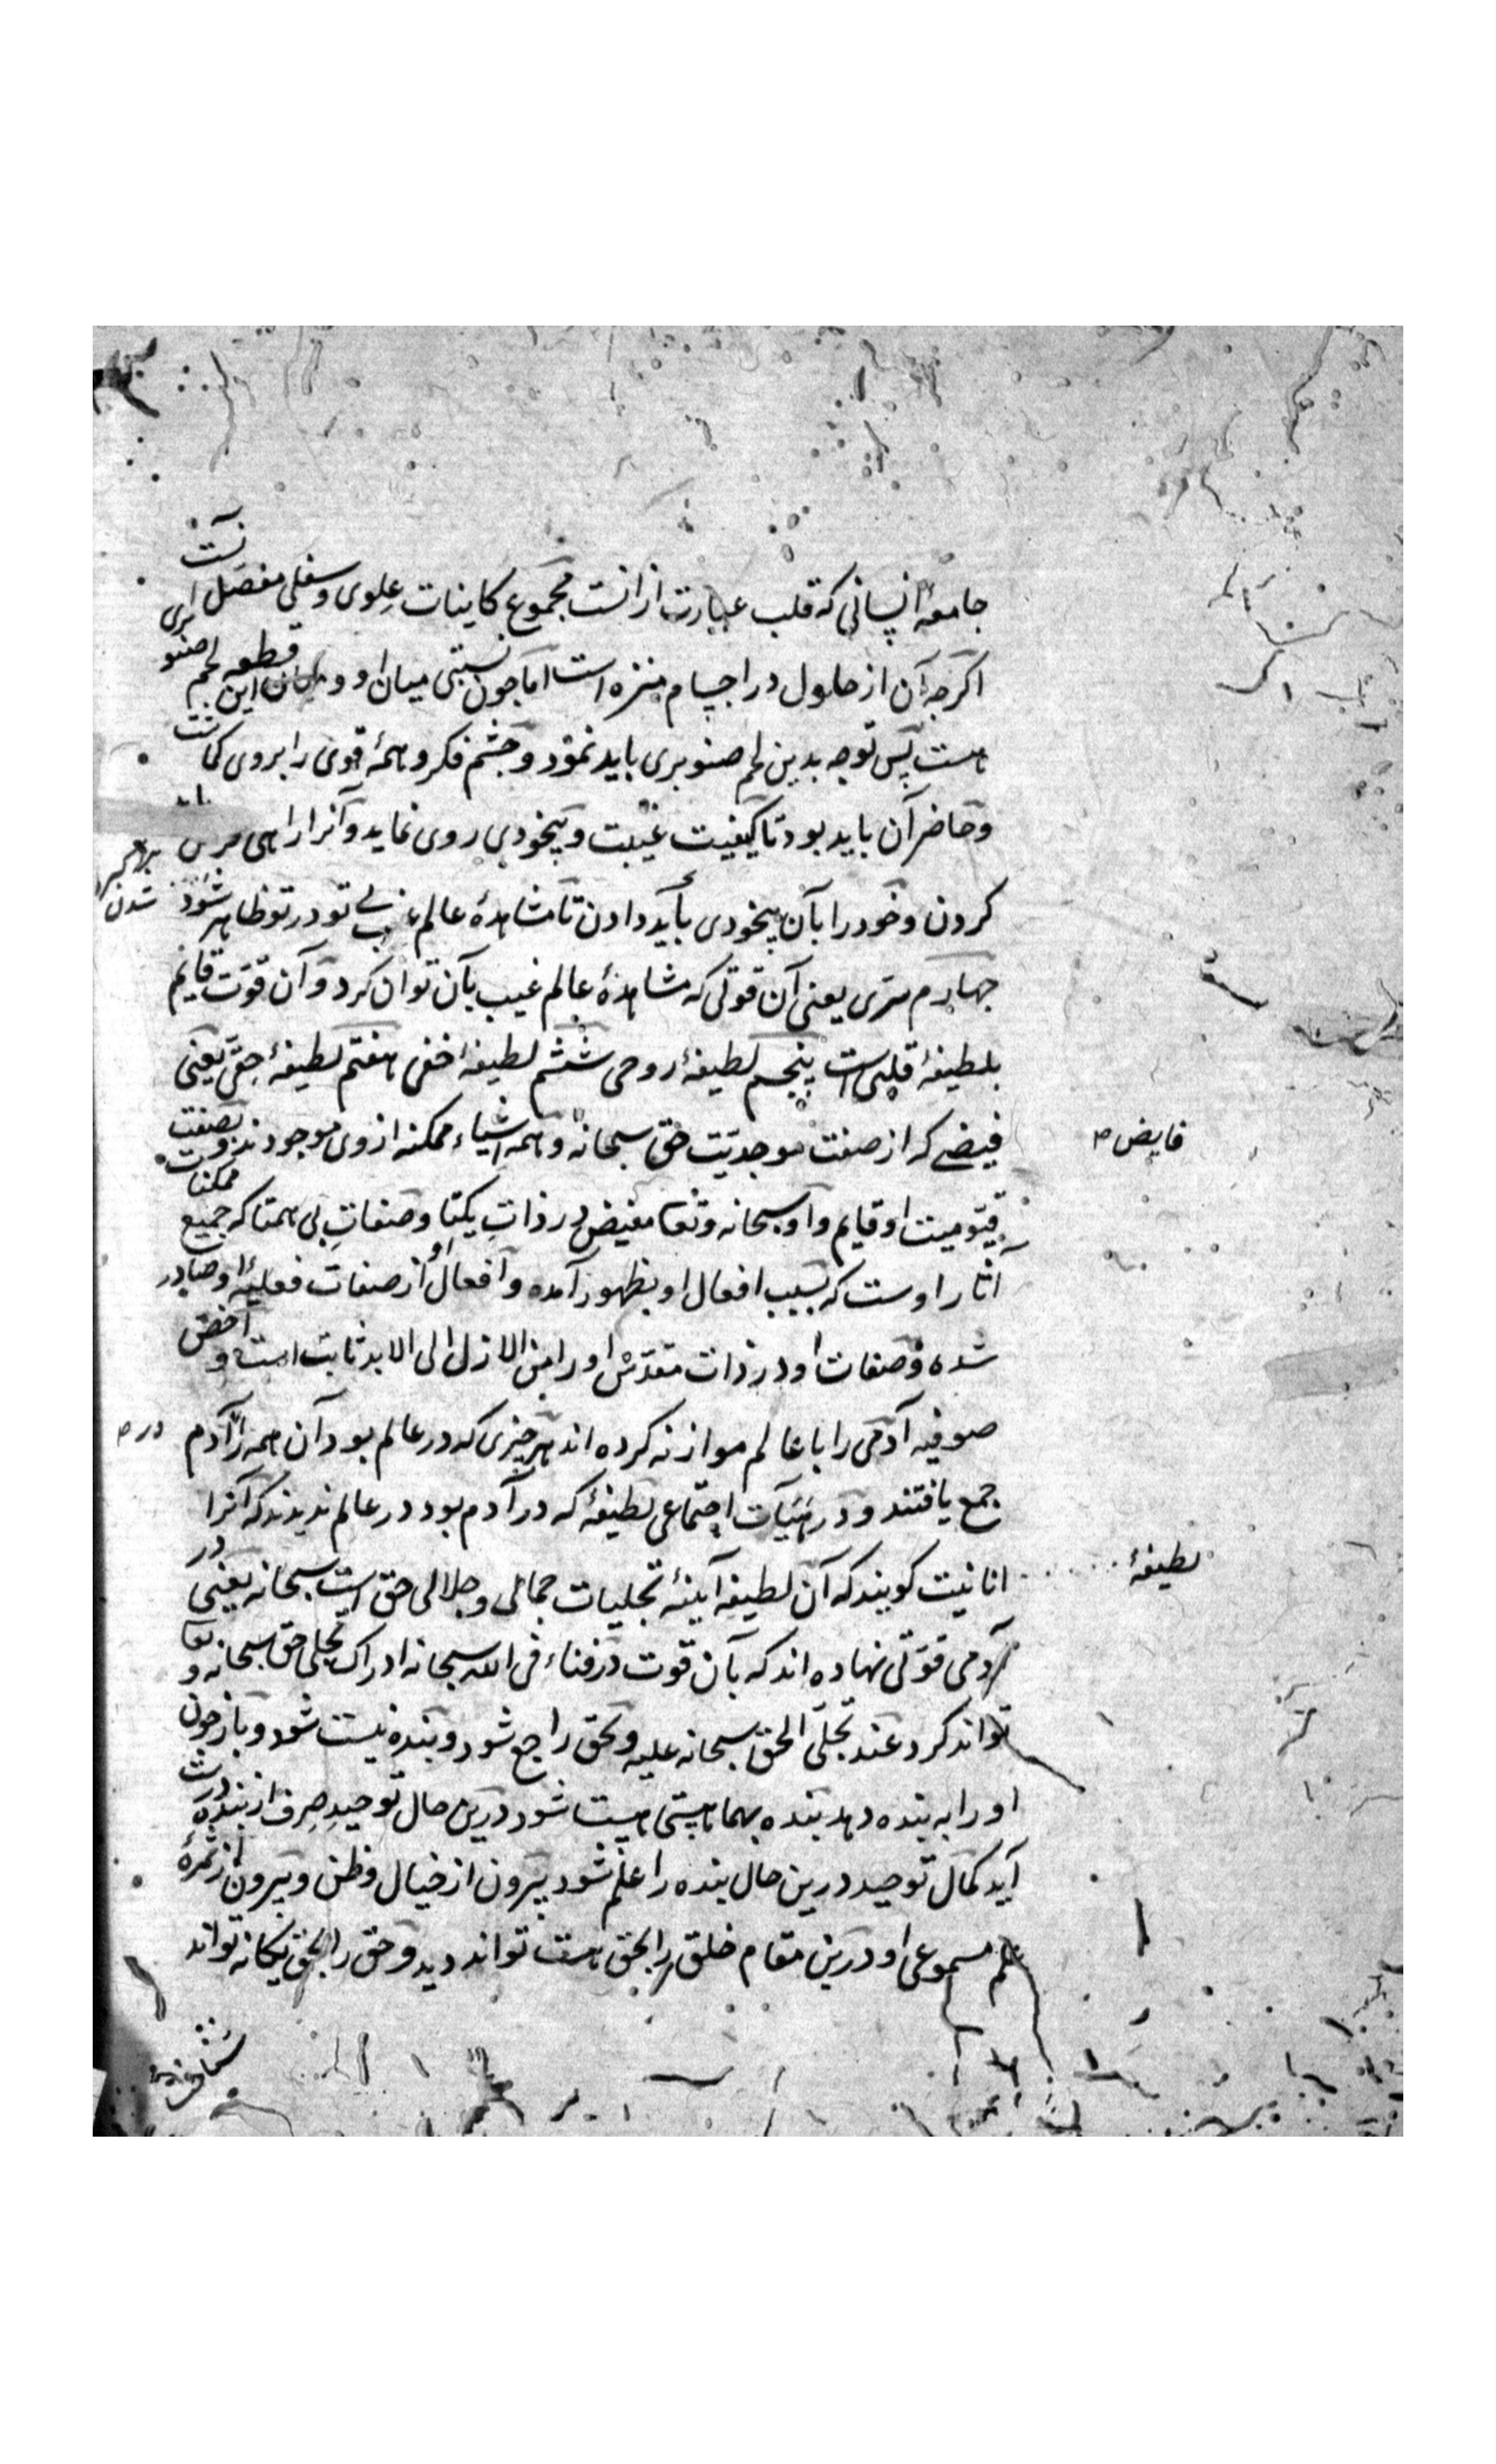 جامعهٔ انسانی که قلب عبارت از انست مجموع کاینات علوی و سفلی مفصل
اکرچه آن از حلول در اجسام منزه است اما چون نسبتی میان او و میان این قطعه لحم صنو
هست پس توجه بدین لحم صنوبری باید نمود و چشم فکر و همهٔ قوی را بروی کماشت
و حاضر آن باید بود تا کیفیت غیبت و بیخودی روی نماید و آنرا راهی فرض
کردن و خود را بآن بیخودی باید دادن تا مشاهدهٔ عالم غیب بی تو در تو ظاهر شود
چهارم سری یعنی آن قوتی که مشاهدهٔ عالم غیب بآن توان کرد و آن قوت قایم
بلطیفهٔ قلبی است پنجم لطیفهٔ روحی ششم لطیفهٔ اخفی هفتم لطیفهٔ حقی یعنی
فیضی که از صفت موجدیت حق سبحانه و همه اشیاء ممکنه از وی موجودند و بصفت
فایض
قیومیت او قایم و او سبحانه و تعا مفیض در ذات یکتا و صفات بی همتا که جمیع ممکنات
آثار اوست که بسبب افعال او بظهور آمده و افعال او از صفات فعلیهٔ او صادر
شده و صفات او در ذات مقدس او را من الازل الی الابد ثابت است و
صوفیه آدمی را با عالم موازنه کرده اند هر چیزی که در عالم بود آن همه را آدم
در
جمع یافتند و در هیأت اجتماعی لطیفهٔ که در آدم بود در عالم ندیدند که آنرا
لطیفهٔ
انانیت کویند که آن لطیفه آیینهٔ تجلیات جمالی و جلالی حق است سبحانه یعنی در
آدمی قوتی نهاده اند که بآن قوت در فناء فی الله سبحانه ادراک تجلی حق سبحانه و تعا
تواند کرد عند تجلی الحق سبحانه علیه و بحق راجع شود و بنده نیست شود و باز چون
او را به بنده دهد بنده بهمان هستی هست شود درین حال توحید صرف از بنده درست
آید کمال توحید درین حال بنده را علم شود بیرون از خیال و ظن و بیرون از ثمرهٔ
علم مسموعی او درین مقام خلق را بحق هست تواند دید و حق را بحق یکانه تواند
شناخت